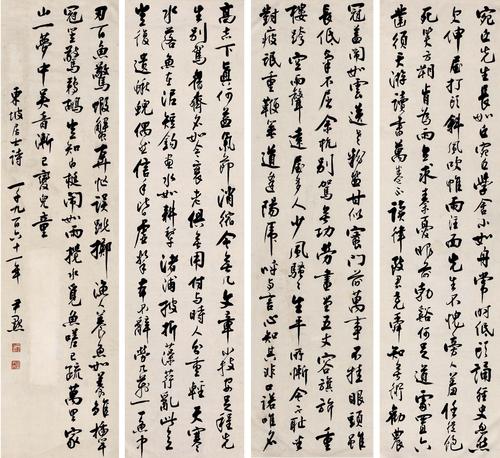 宛丘先生長如丘宛丘學舍小如舟常時低頭誦經史忽然
欠伸屋打頭斜風吹帷雨注面先生不愧旁人羞任從飽
死笑方朔肯為雨立求秦優眼前勃谿何足道處置六
鑿須天游讀書萬卷不讀律致君堯舜知無術勸農
冠蓋鬧如雲送老虀鹽甘似蜜門前萬事不挂眼頭雖
長低氣不屈餘杭別駕無功勞畫堂五丈容旂旄重
樓跨空雨聲遠屋多人少風騷騷平生所慚今不恥坐
對疲氓更鞭箠道逢陽虎呼與言心知其非口諾唯居
高志下真何益氣節消縮今無幾文章小技安足程先
生別駕舊齊名如今衰老俱無用付與時人分重輕天寒
水落魚在泥短鉤畫水如耕犁渚蒲披折藻荇亂此意
豈復遺鰍鯢偶然信手皆虛擊本不辭勞幾萬一一魚中
刃百魚驚蝦蟹奔忙誤跳擲漁人養魚如養雛插竿
冠笠驚鵜鶘豈知白梃鬧如雨攪水覓魚嗟已疏萬里家
山一夢中吳音漸已變兒童
東坡居士詩 一千九百六十一年 尹默